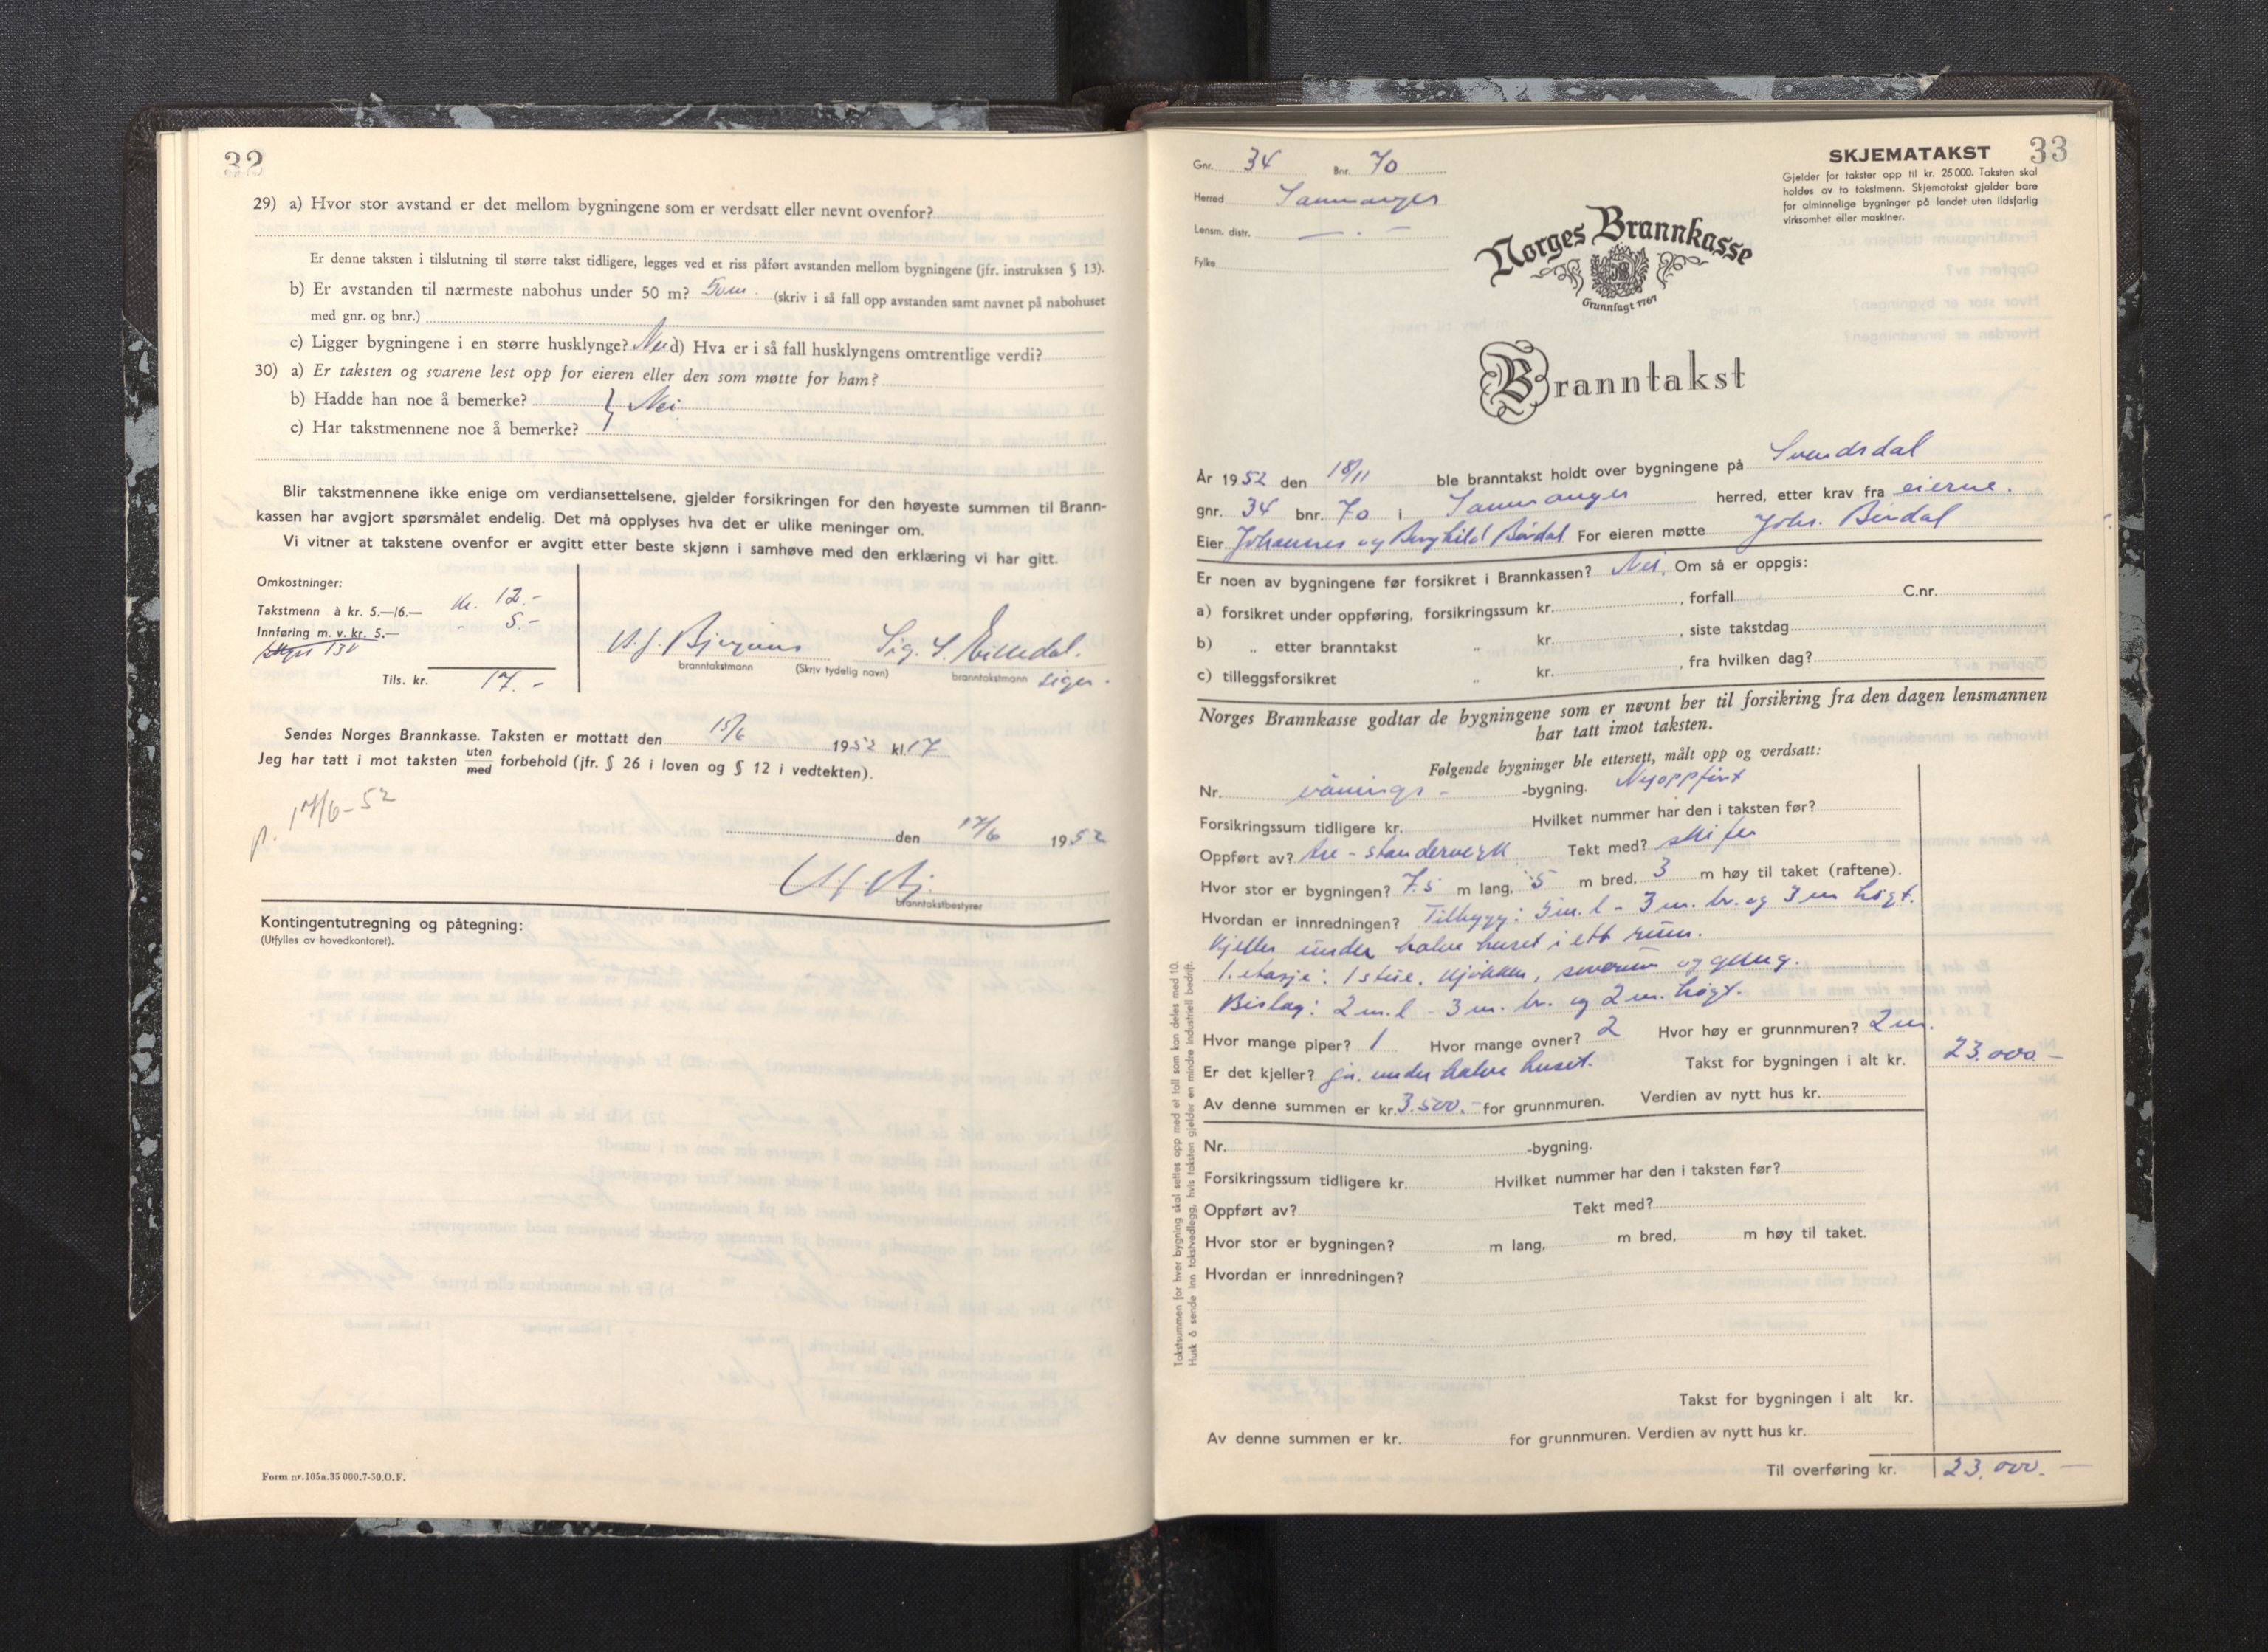 32
29) a) Hvor stor avstand er det mellom bygningene som er verdsatt eller nevnt ovenfor?
Er denne taksten i tilslutning til større takst tidligere, legges ved et riss påført avstanden mellom bygningene (jfr. instruksen § 13).
b) Er avstanden til nærmeste nabohus under 50 m? 50 m. (skriv i så fall opp avstanden samt navnet på nabohuset
med gnr. og bnr.)
c) Ligger bygningene i en større husklynge? Nei d) Hva er i så fall husklyngens omtrentlige verdi?
30) a) Er taksten og svarene lest opp for eieren eller den som møtte for ham?
b) Hadde han noe å bemerke? } Nei
c) Har takstmennene noe å bemerke?
Blir takstmennene ikke enige om verdiansettelsene, gjelder forsikringen for den høyeste summen til Brann-
kassen har avgjort spørsmålet endelig. Det må opplyses hva det er ulike meninger om.
Vi vitner at takstene ovenfor er avgitt etter beste skjønn i samhøve med den erklæring vi har gitt.
Omkostninger:
Takstmenn à kr. 5.—/6.— kr. 12.-
Innføring m. v. kr. 5.— - 5.-
Tils. kr. 17.-
branntakstmann (Skriv tydelig navn) branntakstmann
Sendes Norges Brannkasse. Taksten er mottatt den 15/6 1952 kl. 17
Jeg har tatt i mot taksten uten med forbehold (jfr. § 26 i loven og § 12 i vedtekten).
p. 17/6-52
den 17/6 1952
branntakstbestyrer
Kontingentutregning og påtegning:
(Utfylles av hovedkontoret).
Form nr. 105a. 35 000. 7-50. O. F.
33
SKJEMATAKST
Gjelder for takster opp til kr. 25 000. Taksten skal
holdes av to takstmenn. Skjematakst gjelder bare
for alminnelige bygninger på landet uten ildsfarlig
virksomhet eller maskiner.
Gnr. 34 Bnr. 70
Herred Samnanger
Lensm. distr. — . —
Fylke
Norges Brannkasse
Grunnlagt 1767
Branntakst
År 1952 den 18/11 ble branntakst holdt over bygningene på Svendsdal
gnr. 34 bnr. 70 i Samnanger herred, etter krav fra eierne.
Eier Johannes og Borghild Børdal For eieren møtte Johs. Børdal
Er noen av bygningene før forsikret i Brannkassen? Nei. Om så er oppgis:
a) forsikret under oppføring, forsikringssum kr. , forfall C.nr.
b) „ etter branntakst „ kr. , siste takstdag
c) tilleggsforsikret „ kr. , fra hvilken dag?
Norges Brannkasse godtar de bygningene som er nevnt her til forsikring fra den dagen lensmannen
har tatt imot taksten.
Følgende bygninger ble ettersett, målt opp og verdsatt:
Nr. vånings- -bygning. Nyoppført
Forsikringssum tidligere kr. Hvilket nummer har den i taksten før?
Oppført av? tre - standerverk Tekt med? skifer
Hvor stor er bygningen? 7.5 m lang, 5 m bred, 3 m høy til taket (raftene).
Hvordan er innredningen? Tilbygg: 5 m. l - 3 m. br. og 3 m høgt.
Kjeller under halve huset i ett rum.
1. etasje: 1 stue, kjøkken, soverum og gang.
Bislag: 2 m. l - 3 m. br. og 2 m. høgt.
Hvor mange piper? 1 Hvor mange ovner? 2 Hvor høy er grunnmuren? 2 m.
Er det kjeller? ja. under halve huset. Takst for bygningen i alt kr. 23.000.-
Av denne summen er kr. 3.500.- for grunnmuren. Verdien av nytt hus kr.
Nr. -bygning.
Forsikringssum tidligere kr. Hvilket nummer har den i taksten før?
Oppført av? Tekt med?
Hvor stor er bygningen? m lang, m bred, m høy til taket.
Hvordan er innredningen?
Takst for bygningen i alt kr.
Av denne summen er kr. for grunnmuren. Verdien av nytt hus kr.
Til overføring kr. 23.000.-
Takstsummen for hver bygning skal settes opp med et tall som kan deles med 10.
Husk å sende inn takstvedlegg, hvis taksten gjelder en mindre industriell bedrift.